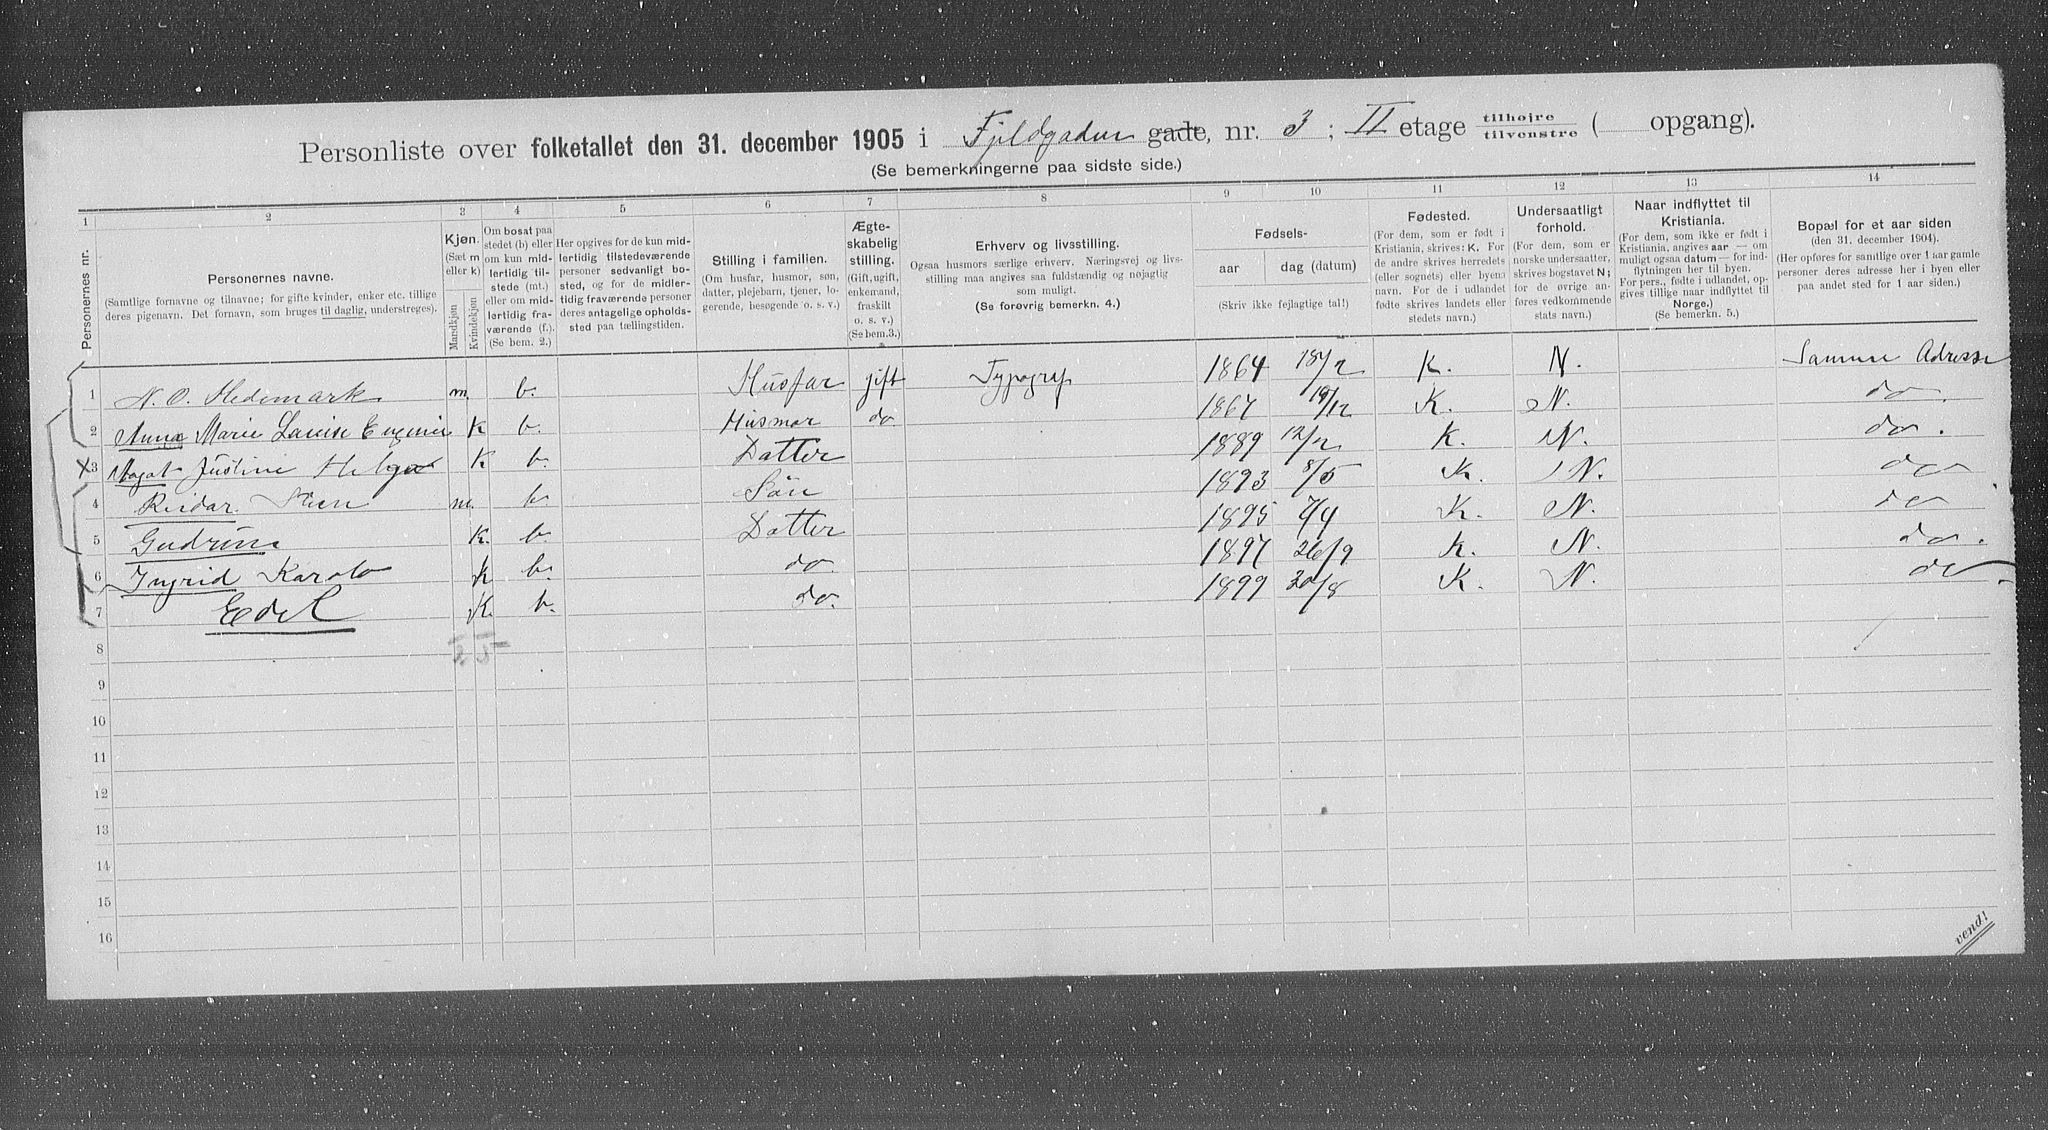 Personliste over folketallet den 31. december 1905 i Fjeldgaden gade, nr. 3; II etage tilhøjre tilvenstre ( opgang).
(Se bemerkningerne paa sidste side.)
1 2 3 4 5 6 7 8 9 10 11 12 13 14
Personernes nr.
Personernes navne.
(Samtlige fornavne og tilnavne; for gifte kvinder, enker etc. tillige
deres pigenavn. Det fornavn, som bruges til daglig, understreges).
Kjøn.
(Sæt m
eller k)
Mandkjøn
Kvindekjøn
Om bosat paa
stedet (b) eller
om kun mid-
lertidig til-
stede (mt.)
eller om mid-
lertidig fra-
værende (f.).
(Se bem. 2.)
Her opgives for de kun mid-
lertidig tilstedeværende
personer sedvanligt bo-
sted, og for de midler-
tidig fraværende personer
deres antagelige opholds-
sted paa tællingstiden.
Stilling i familien.
(Om husfar, husmor, søn,
datter, plejebarn, tjener, lo-
gerende, besøgende o. s. v.)
Ægte-
skabelig
stilling.
(Gift, ugift,
enkemand,
fraskilt
o. s. v.)
(Se bem. 3.)
Erhverv og livsstilling.
Ogsaa husmors særlige erhverv. Næringsvej og livs-
stilling maa angives saa fuldstændig og nøjagtig
som muligt.
(Se forøvrig bemerkn. 4.)
Fødsels-
aar dag (datum)
(Skriv ikke fejlagtige tal!)
Fødested.
(For dem, som er født i
Kristiania, skrives: K. For
de andre skrives herredets
(eller sognets) eller byens
navn. For de i udlandet
fødte skrives landets eller
stedets navn.)
Undersaatligt
forhold.
(For dem, som er
norske undersaatter,
skrives bogstavet N;
for de øvrige an-
føres vedkommende
stats navn.)
Naar indflyttet til
Kristiania.
(For dem, som ikke er født i
Kristiania, angives aar — om
muligt ogsaa datum — for ind-
flytningen her til byen.
For pers., fødte i udlandet, op-
gives tillige naar indflyttet til
Norge.)
(Se bemerkn. 5.)
Bopæl for et aar siden
(den 31. december 1904).
(Her opføres for samtlige over 1 aar gamle
personer deres adresse her i byen eller
paa andet sted for 1 aar siden.)
1 N. O. Hedemark m. b. Husfar gift Typograf 1864 18/2 K. N. Samme Adresse
2 Anna Marie Louise Eugenie K b. Husmor do. 1867 19/12 K. N. do.
X 3 Magot Justine Helga K b. Datter 1889 12/2 K. N. do.
4 Reidar Steen m. b. Søn 1893 8/5 K. N. do
5 Gudrun K. b. Datter 1895 7/4 K. N. do
6 Ingrid Karoto K b. do. 1897 26/9 K. N. do.
7 Edel K. b. do. 1899 20/8 K. N. do
8 2 5
9
10
11
12
13
14
15
16
vend!